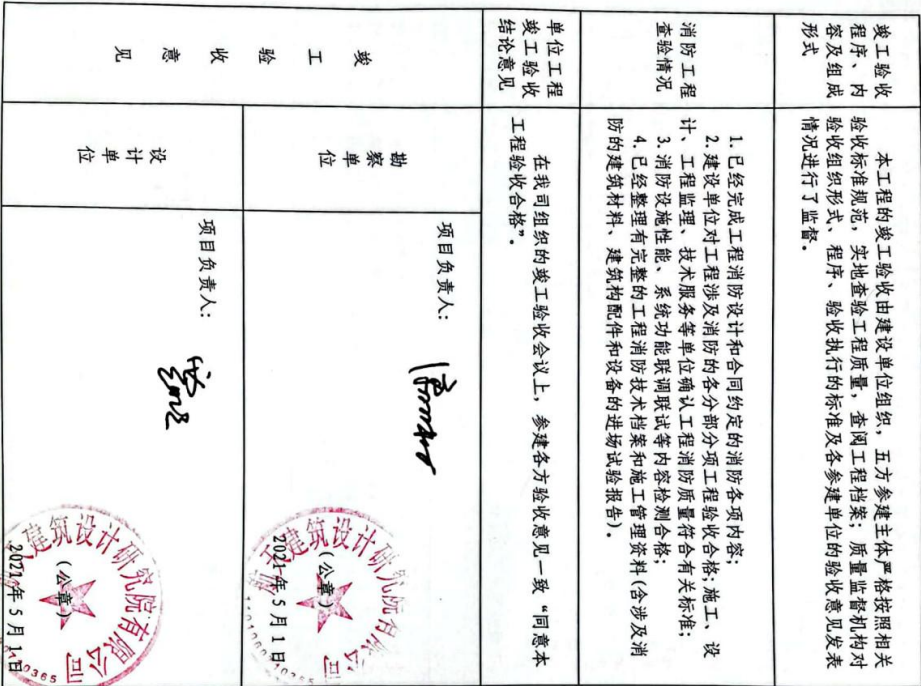 竣工验收
程序、内
容及组成
形式
本工程的竣工验收由建设单位组织，五方参建主体严格按照相关
验收标准规范，实地查验工程质量，查阅工程档案；质量监督机构对
验收组织形式、程序、验收执行的标准及各参建单位的验收意见发表
情况进行了监督。
消防工程
查验情况
1. 已经完成工程消防设计和合同约定的消防各项内容；
2. 建设单位对工程涉及消防的各分部分项工程验收合格；施工、设
计、工程监理、技术服务等单位确认工程消防质量符合有关标准；
3. 消防设施性能、系统功能联调联试等内容检测合格；
4. 已经整理有完整的工程消防技术档案和施工管理资料(含涉及消
防的建筑材料、建筑构配件和设备的进场试验报告)。
单位工程
竣工验收
结论意见
在我司组织的竣工验收会议上，参建各方验收意见一致“同意本
工程验收合格”。
竣工验收意见
勘察
单位
项目负责人：
建筑设计研究院有限公司
(公章)
2021年5月1日
设计
单位
项目负责人：
建筑设计研究院有限公司
(公章)
2021年5月1日